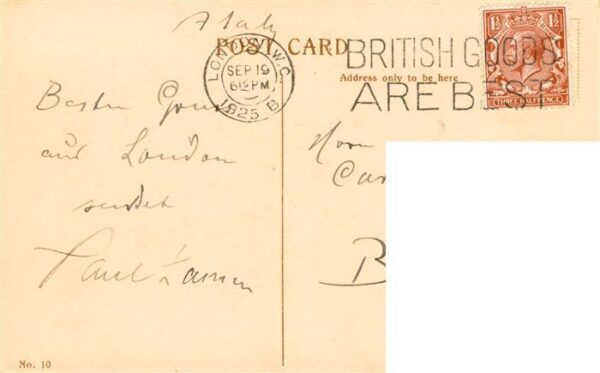 POST CARD
LONDON.W.C.
SEP 19
6 15 PM
1925 B
BRITISH GOODS
ARE BEST
Address only to be here
1½ 1½
THREE HALFPENCE
Besten Gruss
aus London
sendet
Paul
No. 10